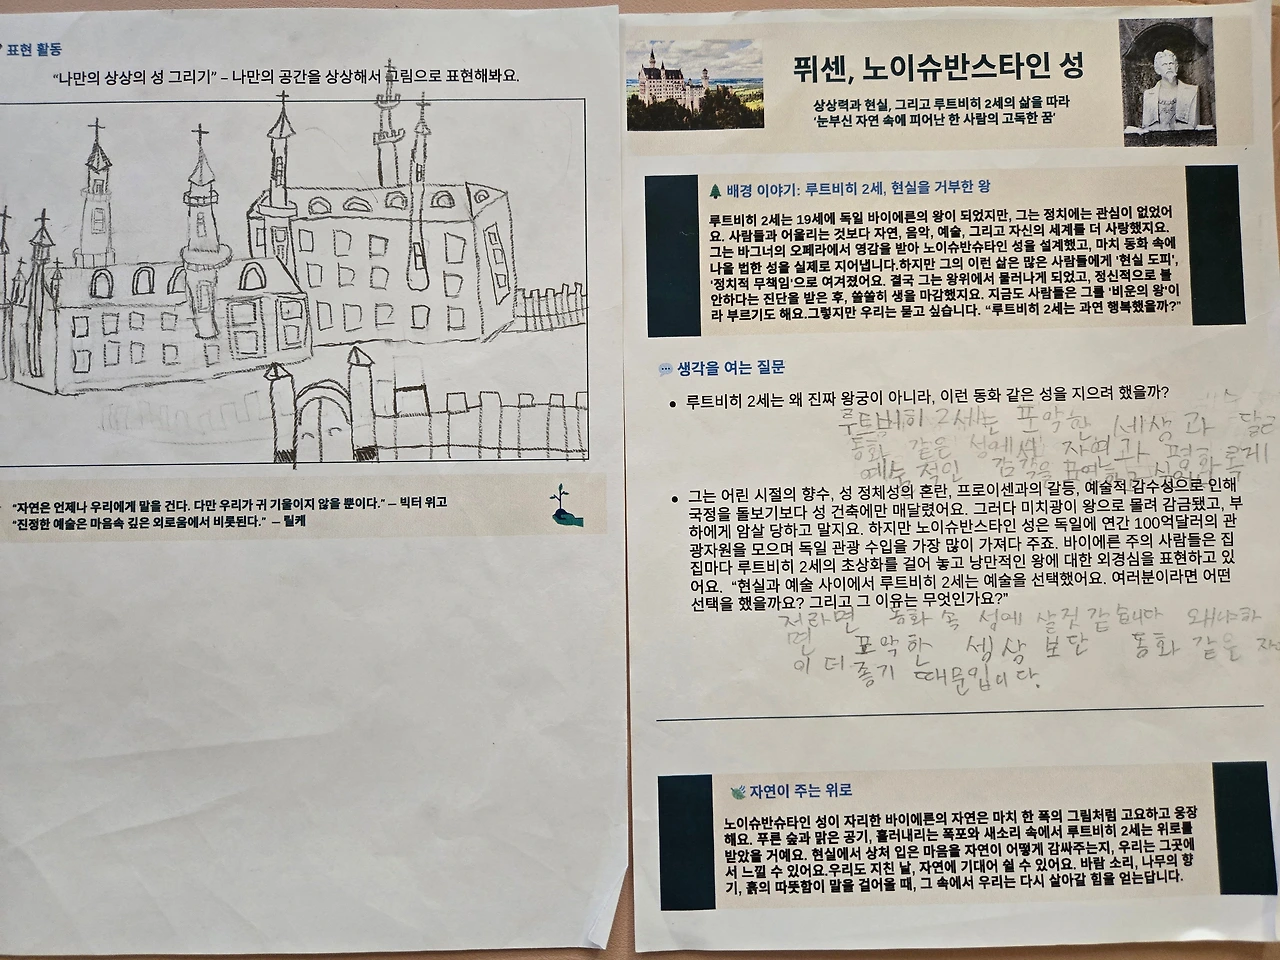 표현 활동
“나만의 상상의 성 그리기” – 나만의 공간을 상상해서 그림으로 표현해봐요.
“자연은 언제나 우리에게 말을 건다. 다만 우리가 귀 기울이지 않을 뿐이다.” – 빅터 위고
“진정한 예술은 마음속 깊은 외로움에서 비롯된다.” – 릴케
퓌센, 노이슈반스타인 성
상상력과 현실, 그리고 루트비히 2세의 삶을 따라
‘눈부신 자연 속에 피어난 한 사람의 고독한 꿈’
배경 이야기: 루트비히 2세, 현실을 거부한 왕
루트비히 2세는 19세에 독일 바이에른의 왕이 되었지만, 그는 정치에는 관심이 없었어
요. 사람들과 어울리는 것보다 자연, 음악, 예술, 그리고 자신의 세계를 더 사랑했지요.
그는 바그너의 오페라에서 영감을 받아 노이슈반슈타인 성을 설계했고, 마치 동화 속에
나올 법한 성을 실제로 지어냅니다.하지만 그의 이런 삶은 많은 사람들에게 ‘현실 도피’,
‘정치적 무책임’으로 여겨졌어요. 결국 그는 왕위에서 물러나게 되었고, 정신적으로 불
안하다는 진단을 받은 후, 쓸쓸히 생을 마감했지요. 지금도 사람들은 그를 ‘비운의 왕’이
라 부르기도 해요.그렇지만 우리는 묻고 싶습니다. “루트비히 2세는 과연 행복했을까?”
생각을 여는 질문
루트비히 2세는 왜 진짜 왕궁이 아니라, 이런 동화 같은 성을 지으려 했을까?
루트비히 2세는 포악한 세상과
동화 같은 성에서 자연과 평화롭게
예술적인 감각을
그는 어린 시절의 향수, 성 정체성의 혼란, 프로이센과의 갈등, 예술적 감수성으로 인해
국정을 돌보기보다 성 건축에만 매달렸어요. 그러다 미치광이 왕으로 몰려 감금됐고, 부
하에게 암살 당하고 말지요. 하지만 노이슈반스타인 성은 독일에 연간 100억달러의 관
광자원을 모으며 독일 관광 수입을 가장 많이 가져다 주죠. 바이에른 주의 사람들은 집
집마다 루트비히 2세의 초상화를 걸어 놓고 낭만적인 왕에 대한 외경심을 표현하고 있
어요. “현실과 예술 사이에서 루트비히 2세는 예술을 선택했어요. 여러분이라면 어떤
선택을 했을까요? 그리고 그 이유는 무엇인가요?”
저라면 동화 속 성에 살것 같습니다 왜냐하
면 포악한 셍상 보단 동화 같은
이 더 좋기 때문입니다.
자연이 주는 위로
노이슈반슈타인 성이 자리한 바이에른의 자연은 마치 한 폭의 그림처럼 고요하고 웅장
해요. 푸른 숲과 맑은 공기, 흘러내리는 폭포와 새소리 속에서 루트비히 2세는 위로를
받았을 거예요. 현실에서 상처 입은 마음을 자연이 어떻게 감싸주는지, 우리는 그곳에
서 느낄 수 있어요.우리도 지친 날, 자연에 기대어 쉴 수 있어요. 바람 소리, 나무의 향
기, 흙의 따뜻함이 말을 걸어올 때, 그 속에서 우리는 다시 살아갈 힘을 얻는답니다.